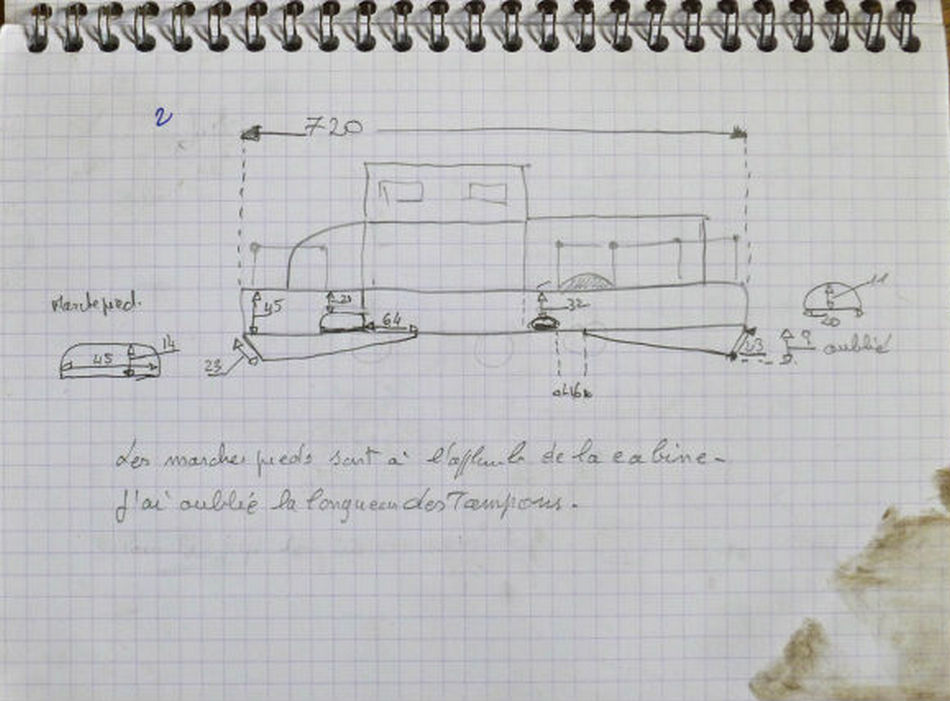 2
720
Marchepied.
45
21
32
11
20
64
14
45
23
23
9
oublié
46
Les marches pieds sont à l'affleurb de la cabine.
J'ai oublié la longueur des Tampons.